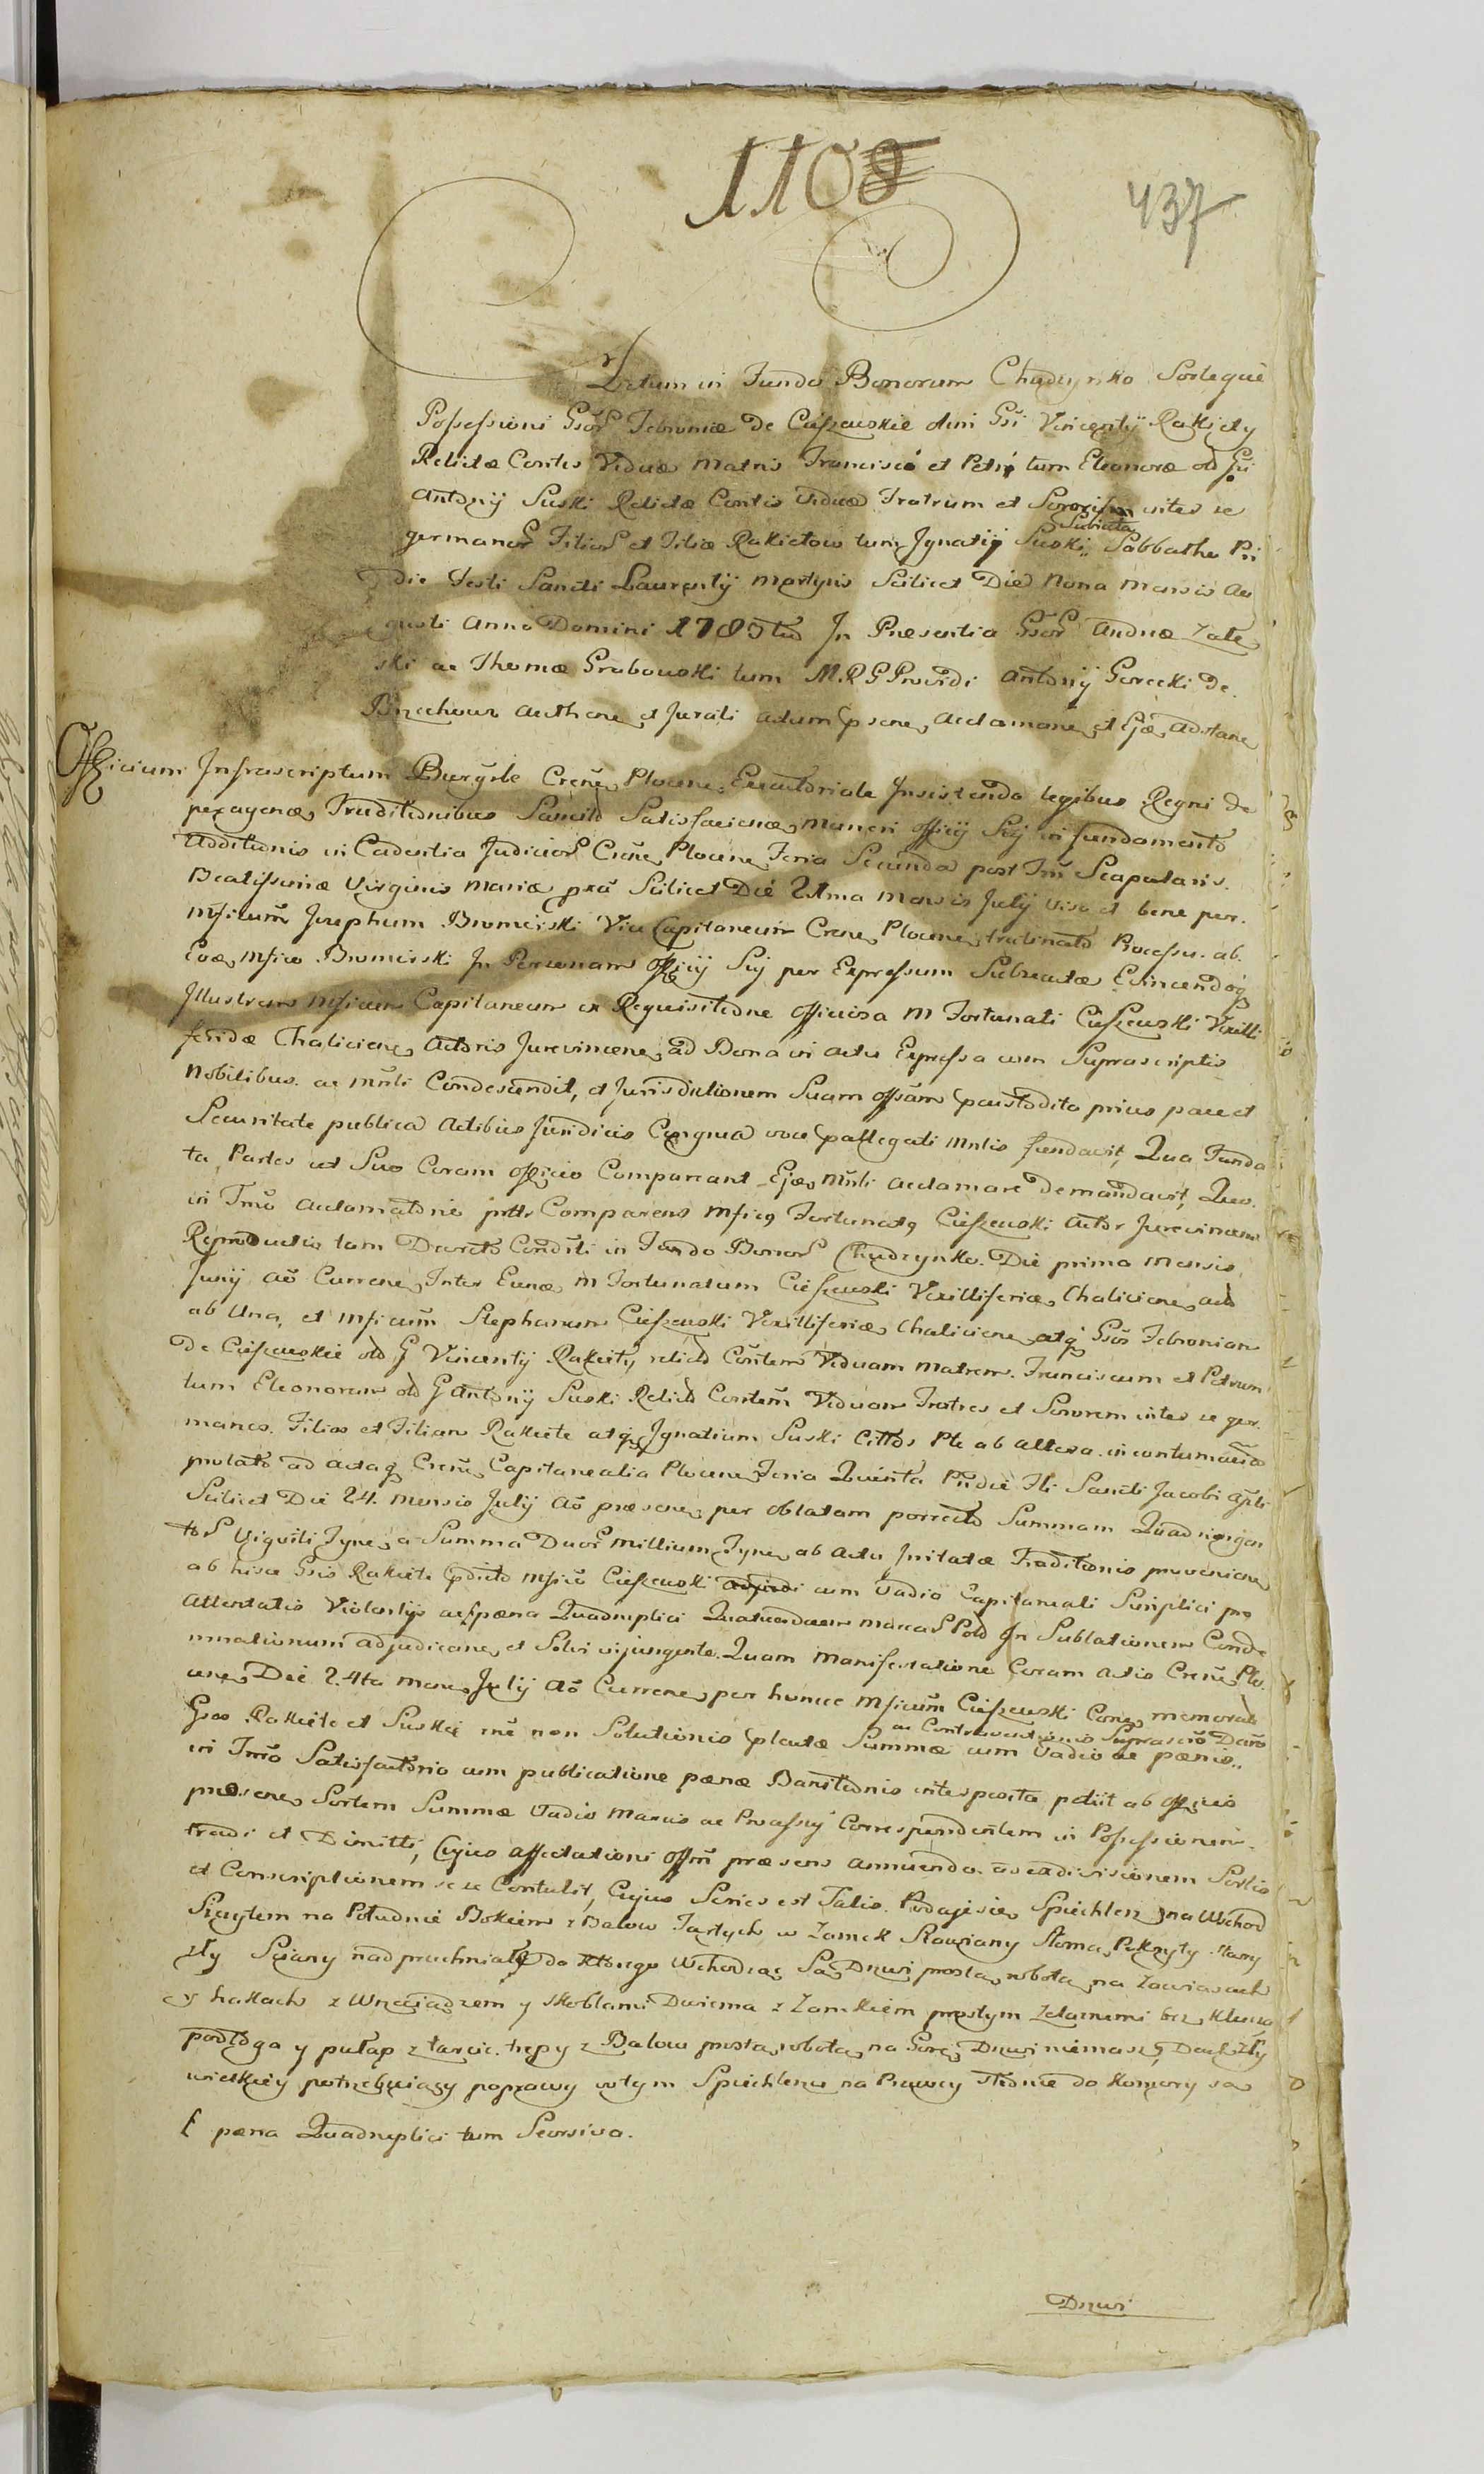 1108
437
Actum in Fundo Bonorum Chudzynko Sorteque
Possessioni Gsor Febroniæ de Cieszewskie olim Gsi Vincentij Rakiety
Relictæ Contis Viduæ Matris Francisci et Petri tum Eleonoræ olð Gsi
Antonij Suski Relictæ Contis Viduæ Fratrum et Sororis inter se
Subiecta
germanor Filior et Filiæ Rakietow tum Jgnatij Suski Sabbatho Pri
die Festi Sancti Laurentij Martyris Scilicet Die Nona Mensis Au
gusti Anno Domini In Præsentia Gsor Andreæ Zale
ski ac Thomæ Grabowski tum M.R.G. Providi Antonij Gorecki de
authene et Jurati actum psene acclamane et Ejæ adstane
Officium Infrascriptum Burgrle Crene Plocene Executoriale Insistendo legibus Regni de
peragenæ Traditionibus Sancito Satisfacienæ muneri officij Sui in fundamento
additionis in Cadentia Judicior Crene Plocene Feria Secunda post Fm Scapularis
Beatissimæ Virginis Mariæ pxa Scilicet Die 21ma Mensis July viso et bene per
Mficum Josephum Bromirski Vice Capitaneum Crene Plocene trutinato Processu ab
Eoæ Mfico Bromirski In Personam officij Sui per Expressum Subrecatæ Evincendoq
Illustrem Mficum Capitaneum ex Requisitione officiosa M Fortunati Cieszewski Vexilli
feridæ Chaliciene Actoris Jurevincene ad Bona in actu Expressa cum Suprascriptis
Nobilibus ac Mnli Condescendit, et Jurisdictionem Suam offsam pcustodita prius pace et
Securitate publica actibus Juridicis Congrua voce pallegati Mnlis fundavit, Qua Funda
ta Partes ut Suo Coram officio Compareant Ejæ Mnli acclamare demandavit, Quo
in Tmo acclamatione pntr Comparens Mficq Fortunatq Cieszewski Actor Jurevincens
Reproductis tam Decreto Condsti in Fundo Bonor Chudzynko Die prima Mensis
Junij Ao Currene Inter Eunæ M Fortunatum Cieszewski Vexilliferiæ Chaliciene act
ab Una, et Mficum Stephanum Cieszewski Vexilliferiæ Chaliciene atq Gsos Febroniam
de Cieszewskie olð G Vincentij Rakiety relictð Contem Viduam Matrem Franciscum et Petrum
tum Eleonoram olð G Antonij Suski Relictð Contem Viduam Fratres et Sororem inter se ger
manos Filios et Filiam Rakiete atq Jgnatium Suski Cittos Pte ab altera in contumacia
prolato ad actaq Crene Capitanealia Plocene Feria Quinta Pridie Fti Sancti Jacobi Apli
Scilicet Die 24 Mensis July Ao præsene per oblatam porrecto Summam Quadringen
tor Viginti Tyne a Summa Duor Millium Tyne ab actu Traditionis proveniene
ab hisce Gsis Rakiete pdicto Mfico Cieszewski cum Vadio Capitaneali Simplici pro
attentatis Violentijs ac pæna Quadruplici Quatuordecim marcar Pold In Sublationem Conde
mnationum adjudicane et Solvi injungente Quam Manifestatione Coram actis Crene Plo
cene Die 24ta Mens July Ao Currene per huncce Mficum Cieszewski Cone memorat
ac Contraventionis Suprascro Dcro
Gsos Rakiete et Suski rne non Solutionis plentæ Summæ cum Vadio ac pænis
in Tmo Satisfactorio cum publicatione pænæ Bannitionis interposita petiit ab officio
præsene Sortem Summæ Vadio Marcis ac Processuj Correspondentem in Possessionem
tradi et Dimitti, Cujus affectationi offm præsens annuendo ad exdivisionem Sortis
et Conscriptionem sese Contulit, Cujus Series est Talis. Podaje się Spichlerz na Wschod
Szczytem na Południe Bokiem z Balow Tartych w Zamek Stawiany Słomą Pokryty stary
zły Sciany nadpruchniałe do ktorego Wchodząc Są Drzwi prostą robotą na Zawiasach
y hakach z Wrzeciądzem y skoblami Dwiema z Zamkiem prostym Zelaznemi bez Klucza
podłoga y pułap z tarcic trepy z Balow prostą robotą na Gorę Drzwi niemasz Dach zły
wielkiey potrzebuiący poprawy wtym Spichlerzu na Prawey stronie do Komory są
[ pæna Quadruplici tum Seorsiva.
Drzwi